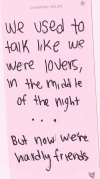 we used to
talk like we
were lovers,
in the middle
of the night
. . .
But now we're
hardly friends